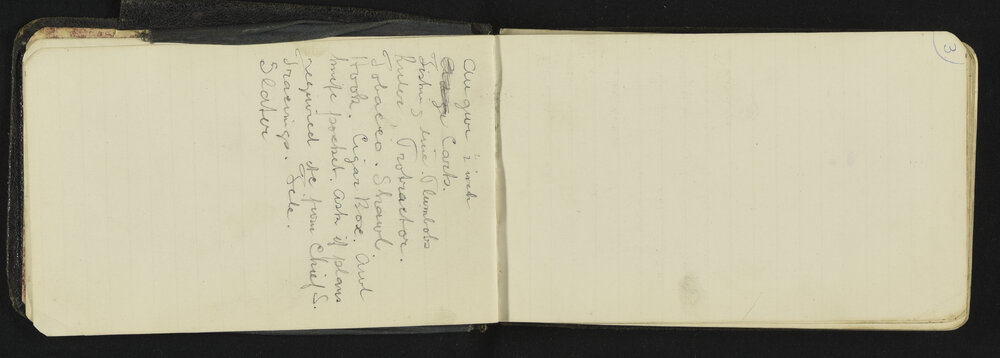 Auger ½ inch
Carts.
Fishing line. Plumbobs
Ruler. Protractor.
Tobacco. Shawl.
Hook. Cigar Box. Awl
knife pocket. Ask if plans
required etc from Chief S.
Tracings. Tele.
Slater
3